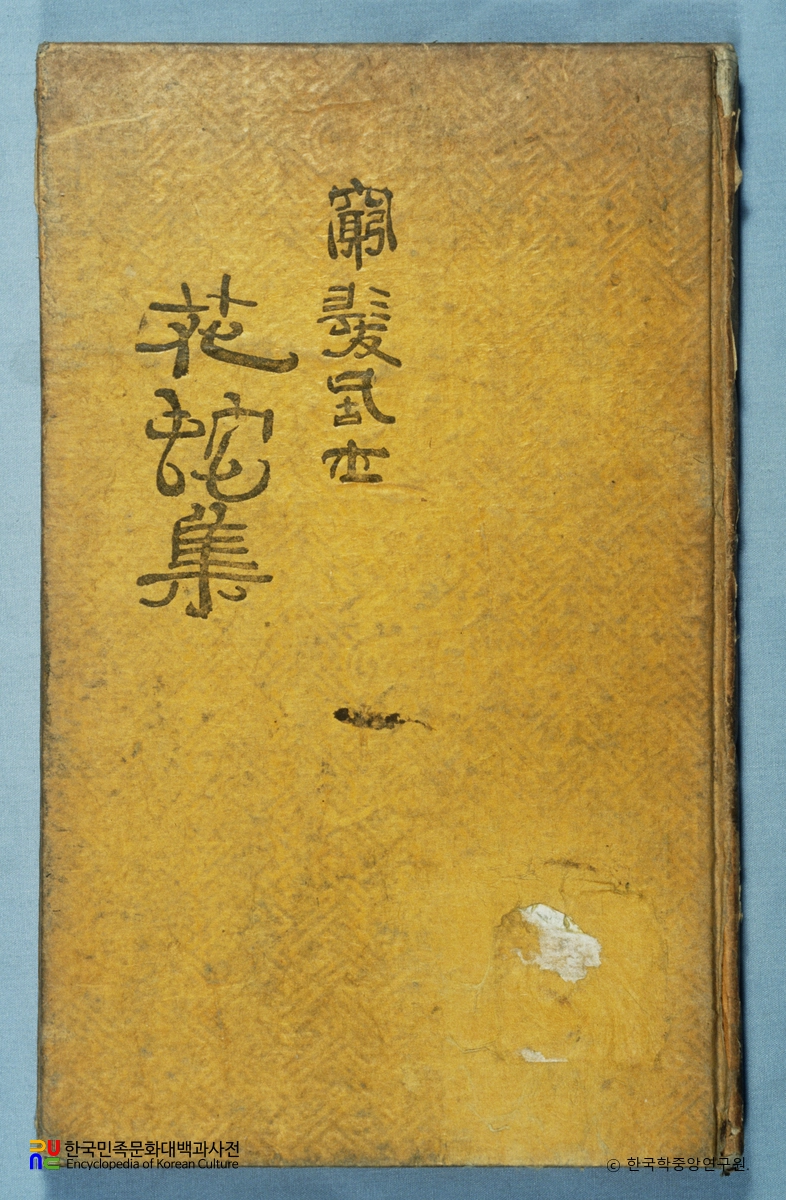 窮髮居士
花蛇集
한국민족문화대백과사전
Encyclopedia of Korean Culture
© 한국학중앙연구원.